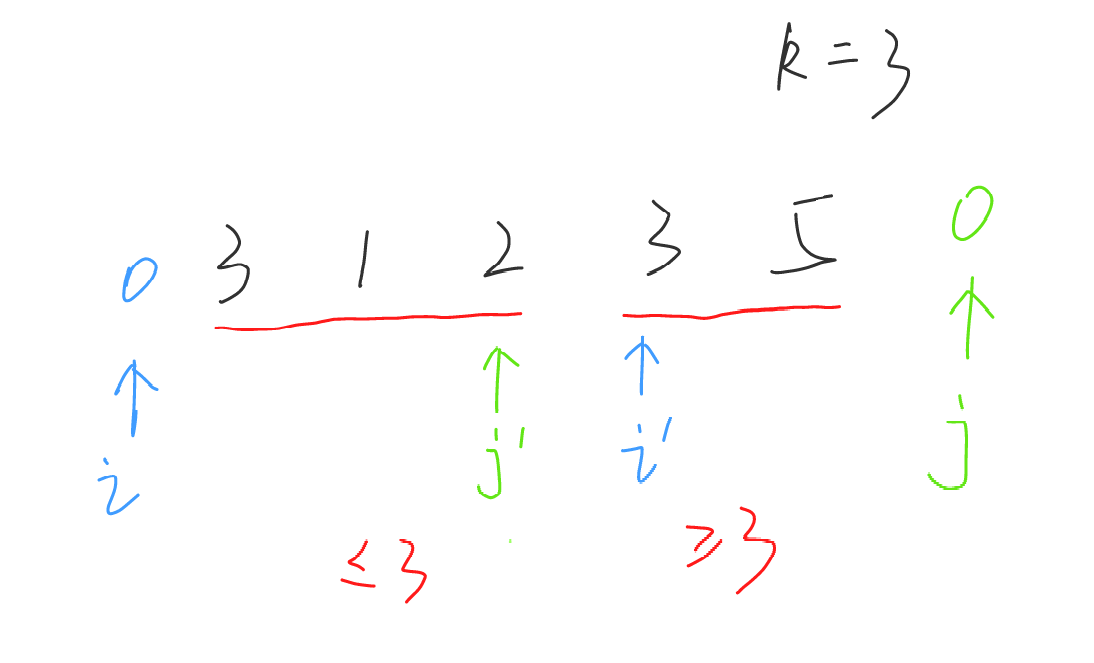 k = 3
0 3 1 2 3 5 0
i j' i' j
≤ 3 ≥ 3